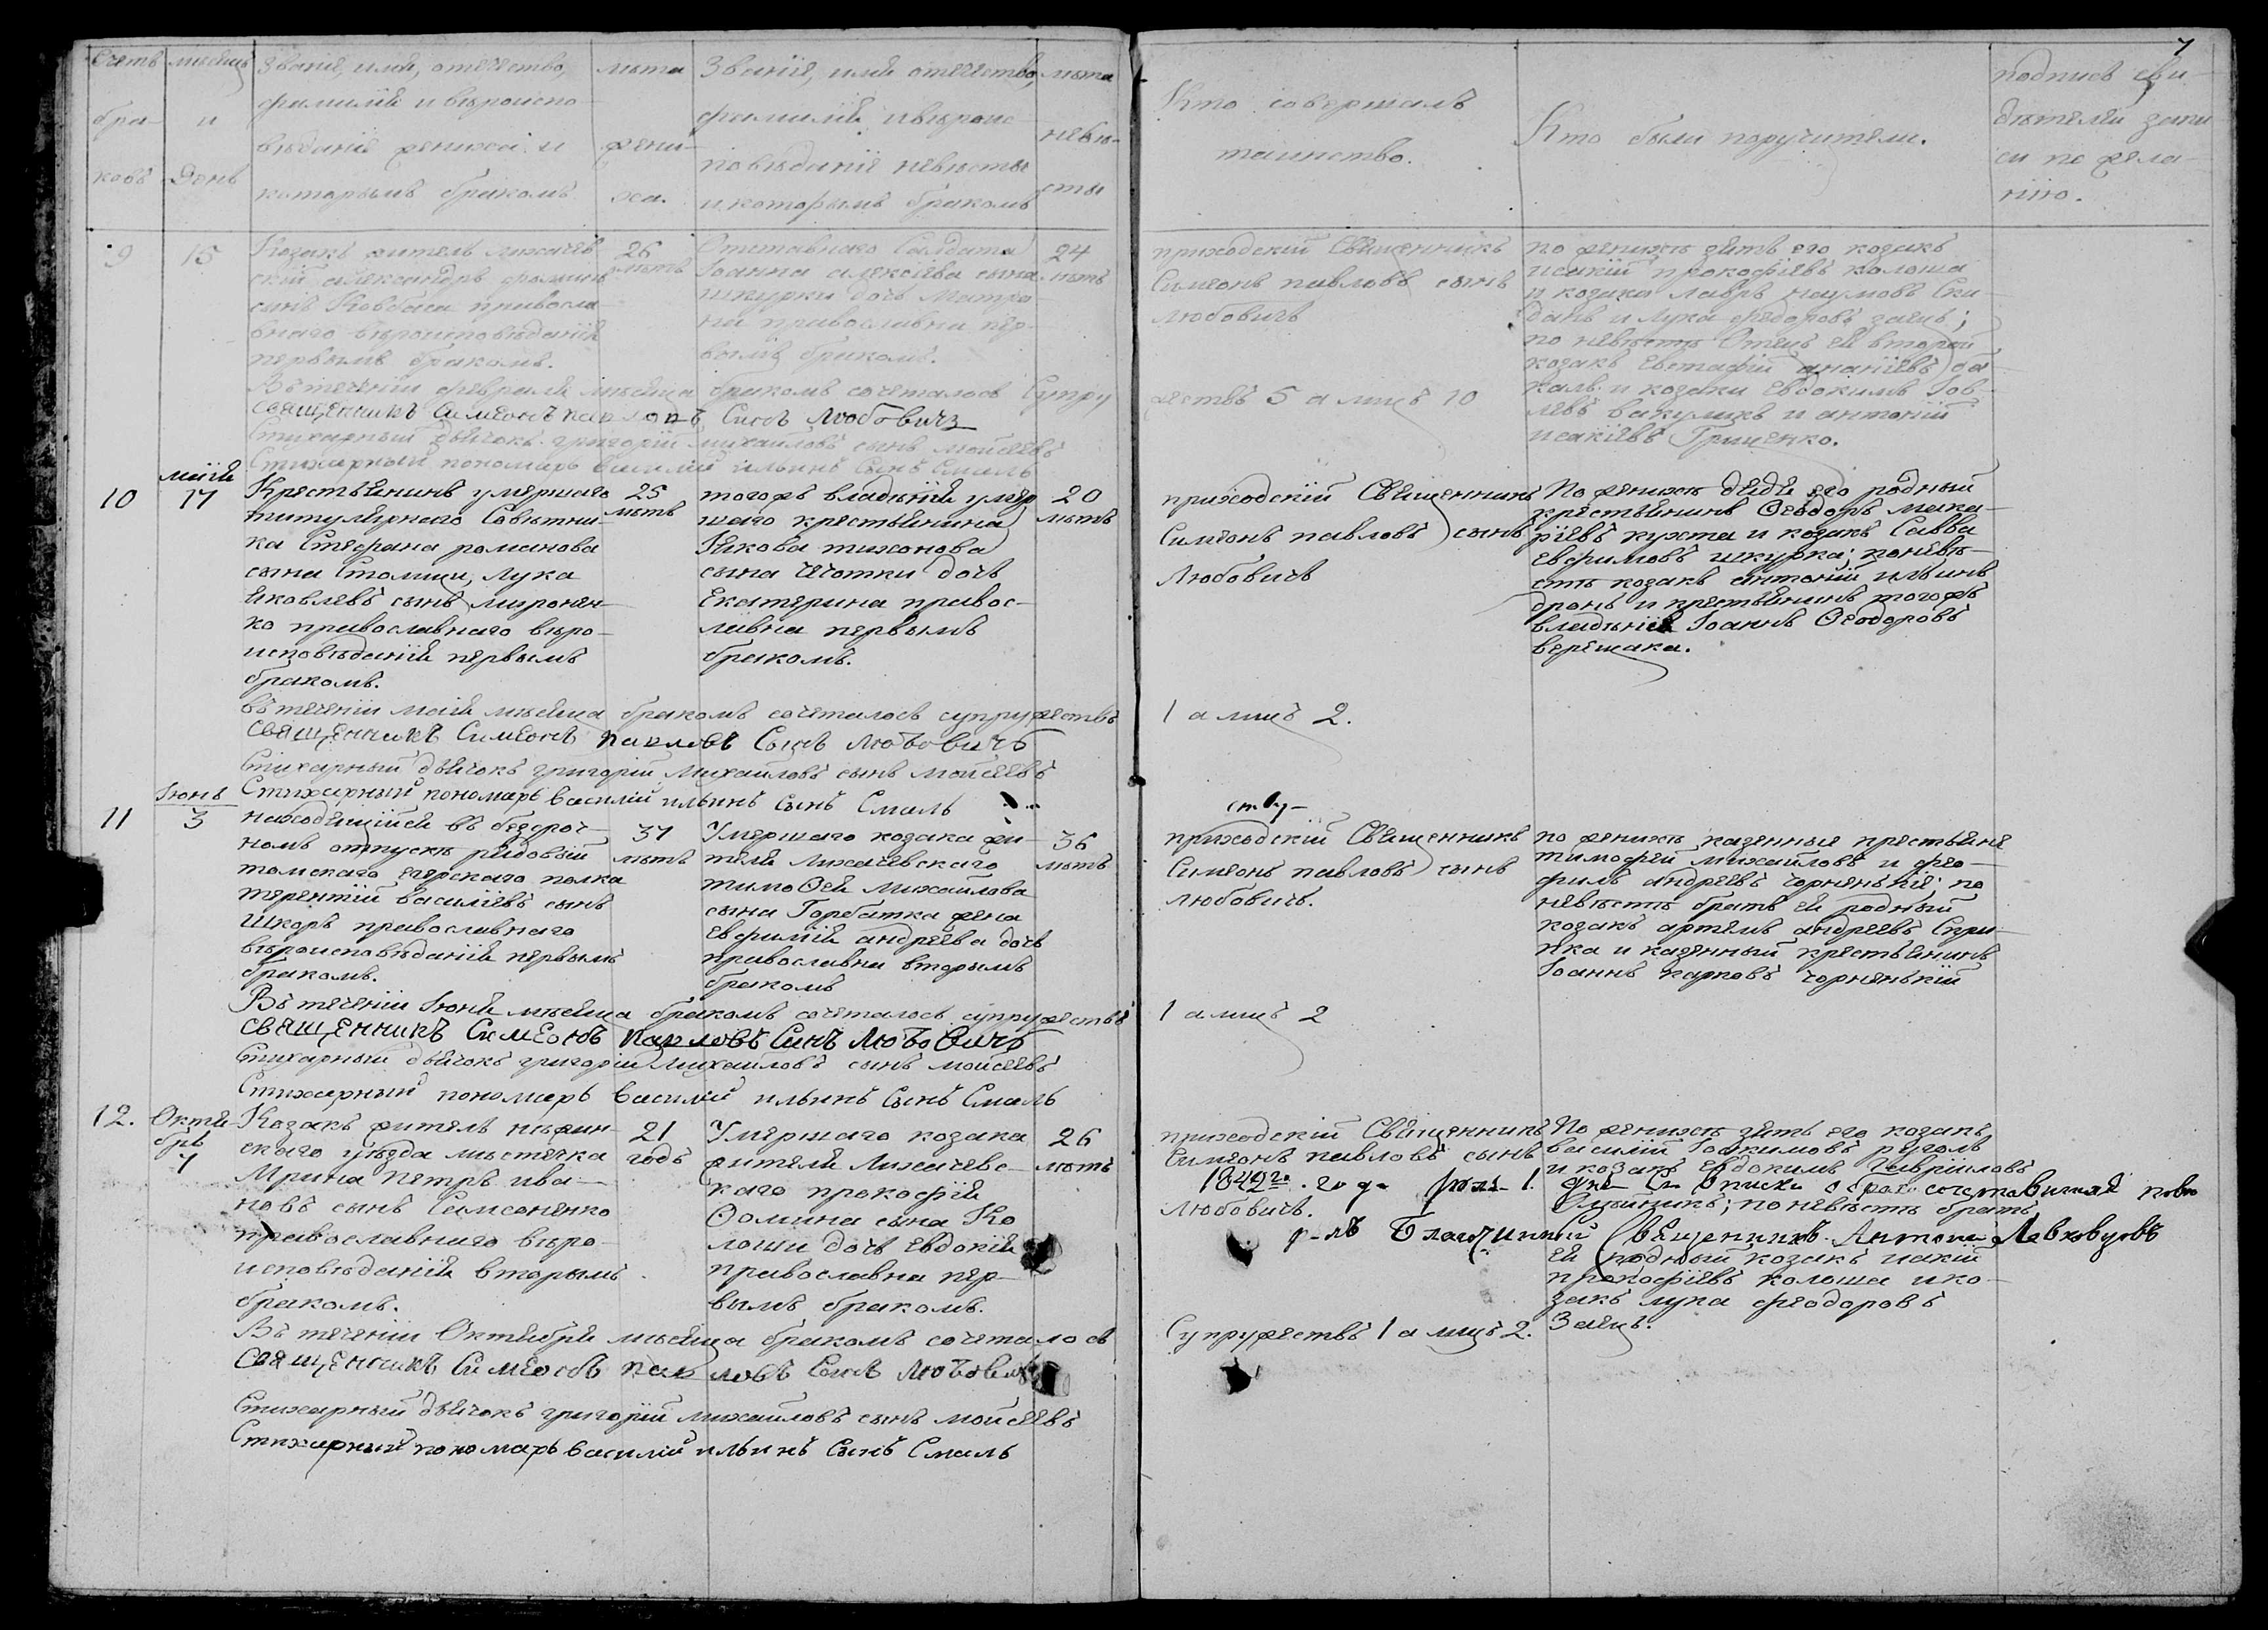 7
Счетъ
бра-
ковъ
месяцъ
и
День
Званіе, имя, отечество,
фамилія и вѣроиспо-
вѣданіе жениха и
которымъ бракомъ
лѣта
жени-
ха.
Званіе, имя отечество,
фамилія и вѣроис-
повѣданіе невѣсты
и которымъ бракомъ
лѣта
невѣ-
сты
Кто совершалъ
таинство.
Кто были поручители.
подпись сви-
дѣтелей запи
си по жела-
нію.
9
15
Козакъ житель лихачев
скій александръ фоминъ
сынъ Ковбаса правосла-
внаго вѣроисповѣданія
первымъ бракомъ.
26
лѣтъ
Отставнаго Салдата
Іоанна алексіева сына
шкурки дочь Матро
на православна пер-
вымъ бракомъ.
24
лѣтъ
приходскій Священникъ
Симеонъ павловъ сынъ
любовичъ
по женихѣ зять его козакъ
исакій прокофіевъ колоша
и козаки лавръ наумовъ Ска-
данъ и лука федоровъ заецъ;
по невѣстѣ Отецъ ея второй
козакъ евстафій ананіевъ
и козаки евдокимъ Іов-
левъ вакуликъ и антоній
исакіевъ Гриценко.
Въ теченіи февраля мѣсяца бракомъ сочеталось Супру
жествъ 5 а лицъ 10
священникъ Симеонъ павловъ Синъ любовичъ
Стихарный дьячокъ григорій михайловъ сынъ мойсеевъ
Стихарный пономарь василій ильинъ Сынъ Смаль
10
маія
17
Крестьянинъ умершаго
титулярнаго Совѣтни-
ка Стефана романова
сына Столици, лука
яковлевъ сынъ миронен-
ко православнаго вѣро-
исповѣданія первымъ
бракомъ.
25
лѣтъ
тогожъ владѣнія умер
шаго крестьянина
Якова тихонова
сына чечотки дочь
Екатерина правос-
лавна первымъ
бракомъ.
20
лѣтъ
приходскій Священникъ
Симеонъ павловъ сынъ
Любовичъ
По женихѣ дядя его родный
крестьянинъ Ѳеодоръ мака-
ріевъ кухта и козакъ Савва
евфимовъ шкурка; по невѣ-
стѣ козакъ антоній ильинъ
дронъ и крестьянинъ тогожъ
владѣнія Іоаннъ Ѳеодоровъ
верещака.
въ теченіи маія мѣсяца бракомъ сочеталось супружествъ
1 а лицъ 2.
священникъ Симеонъ павловъ Синъ любовичъ
Стихарный дьячокъ григорій Михайловъ сынъ мойсеевъ
Стихарный пономарь василій ильинъ Сынъ Смаль
11
Іюнь
3
находящійся въ безсроч-
номъ отпускѣ рядовый
томскаго егерскаго полка
терентій василіевъ сынъ
шкоръ православнаго
вѣроисповѣданія первымъ
бракомъ.
37
лѣтъ
Умершаго козака жи-
теля Лихачевскаго
тимоѲея михайлова
сына Горбатка жена
евфимія андреева дочь
православна вторымъ
бракомъ
36
лѣтъ
приходскій Священникъ
Симеонъ павловъ сынъ
любовичъ.
по женихѣ казенные крестьяне
тимофей михайловъ и фео-
филъ андреевъ чорненькіе; по
невѣстѣ братъ ея родный
козакъ артемъ андреевъ Скри-
пка и казенный крестьянинъ
Іоаннъ карповъ чорненькій
Въ теченіи Іюня мѣсяца бракомъ сочеталось супружествъ
1 а лицъ 2
священникъ Симеонъ павловъ Синъ любовичъ
Стихарный дьячокъ григорій Михайловъ сынъ мойсеевъ
Стихарный пономарь василій ильинъ Сынъ Смаль
12.
Октя-
брь
7
Козакъ житель нѣжин-
скаго уѣзда мѣстечка
Мрина петръ ива-
новъ сынъ Симоненко
православнаго вѣро-
исповѣданія вторымъ
бракомъ.
21
годъ
Умершаго козака
жителя Лихачевс-
каго прокофія
Ѳомина сына Ко
лоши дочь евдокія
православна пер-
вымъ бракомъ.
26
лѣтъ
приходскій Священникъ
Симеонъ павловъ сынъ
Любовичъ.
По женихѣ зять его козакъ
василій Іоакимовъ руголь
и козакъ Евдокимъ Гавріиловъ
по невѣстѣ братъ
ея родный козакъ исакій
прокофіевъ колоша и ко-
закъ лука феодоровъ
Заецъ.
1842го года
Благочинный Священникъ Антоній Левковцовъ
Въ теченіи Октября мѣсяца бракомъ сочеталось
Супружествъ 1 а лицъ 2.
священникъ Симеонъ павловъ Синъ любович
Стихарный дьячокъ григорій михайловъ сынъ мойсеевъ
Стихарный пономарь василій ильинъ Сынъ Смаль